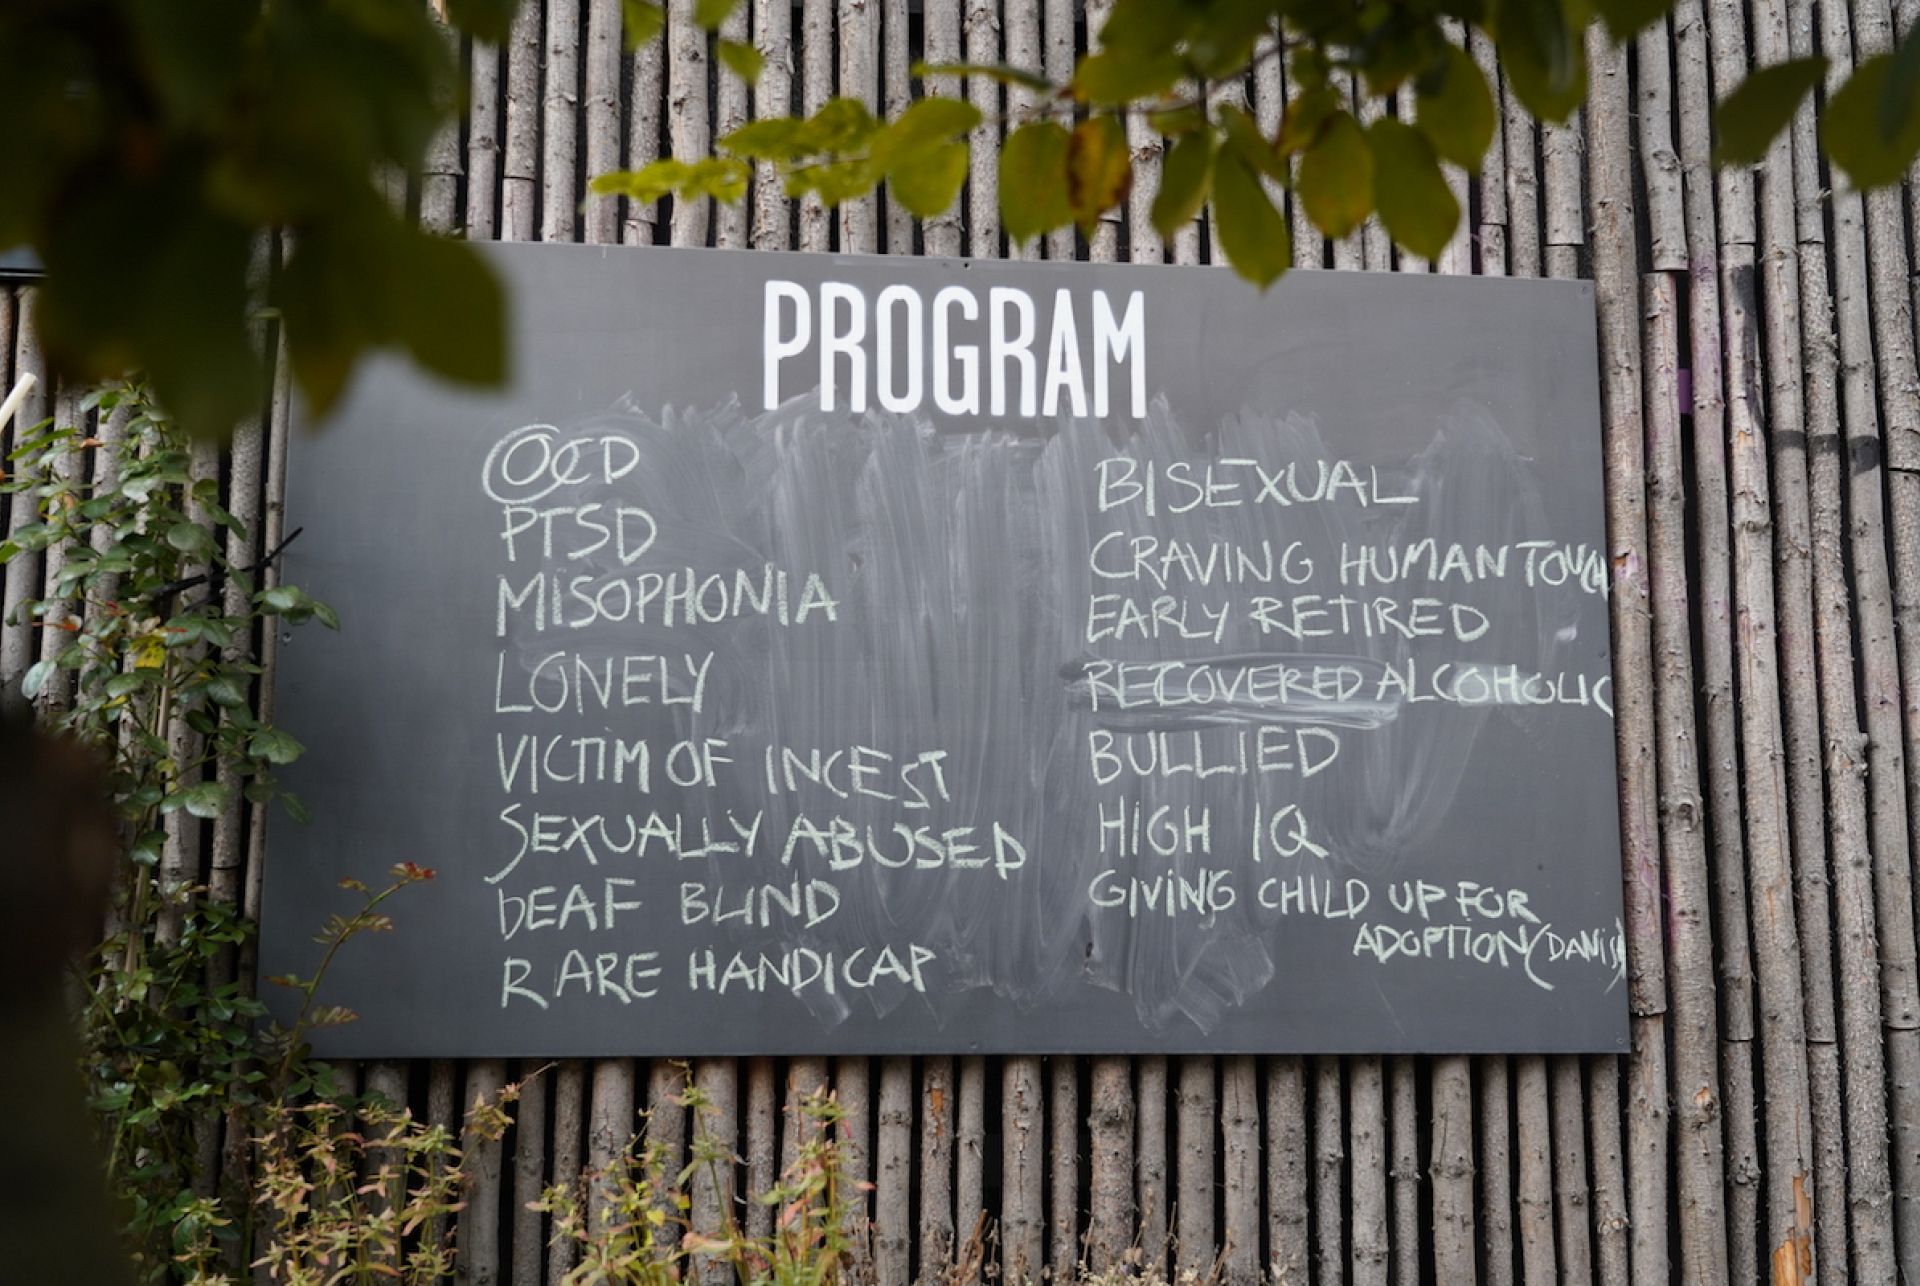 PROGRAM
OCD
PTSD
MISOPHONIA
LONELY
VICTIM OF INCEST
SEXUALLY ABUSED
DEAF BLIND
RARE HANDICAP
BISEXUAL
CRAVING HUMAN TOUCH
EARLY RETIRED
RECOVERED ALCOHOLIC
BULLIED
HIGH IQ
GIVING CHILD UP FOR
ADOPTION (DANISH)